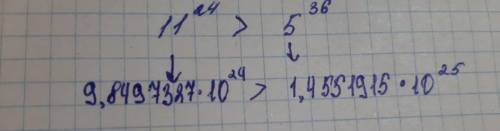 11²⁴ > 5³⁶
↓ ↓
9,8497327·10²⁴ > 1,4551915·10²⁵